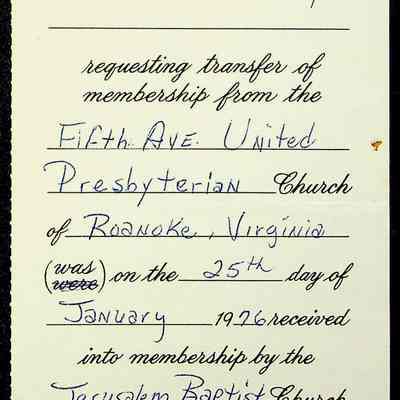 requesting transfer of
membership from the
Fifth Ave. United
Presbyterian Church
of Roanoke, Virginia
(was
were) on the 25th day of
January 1976 received
into membership by the
Jerusalem Baptist Church